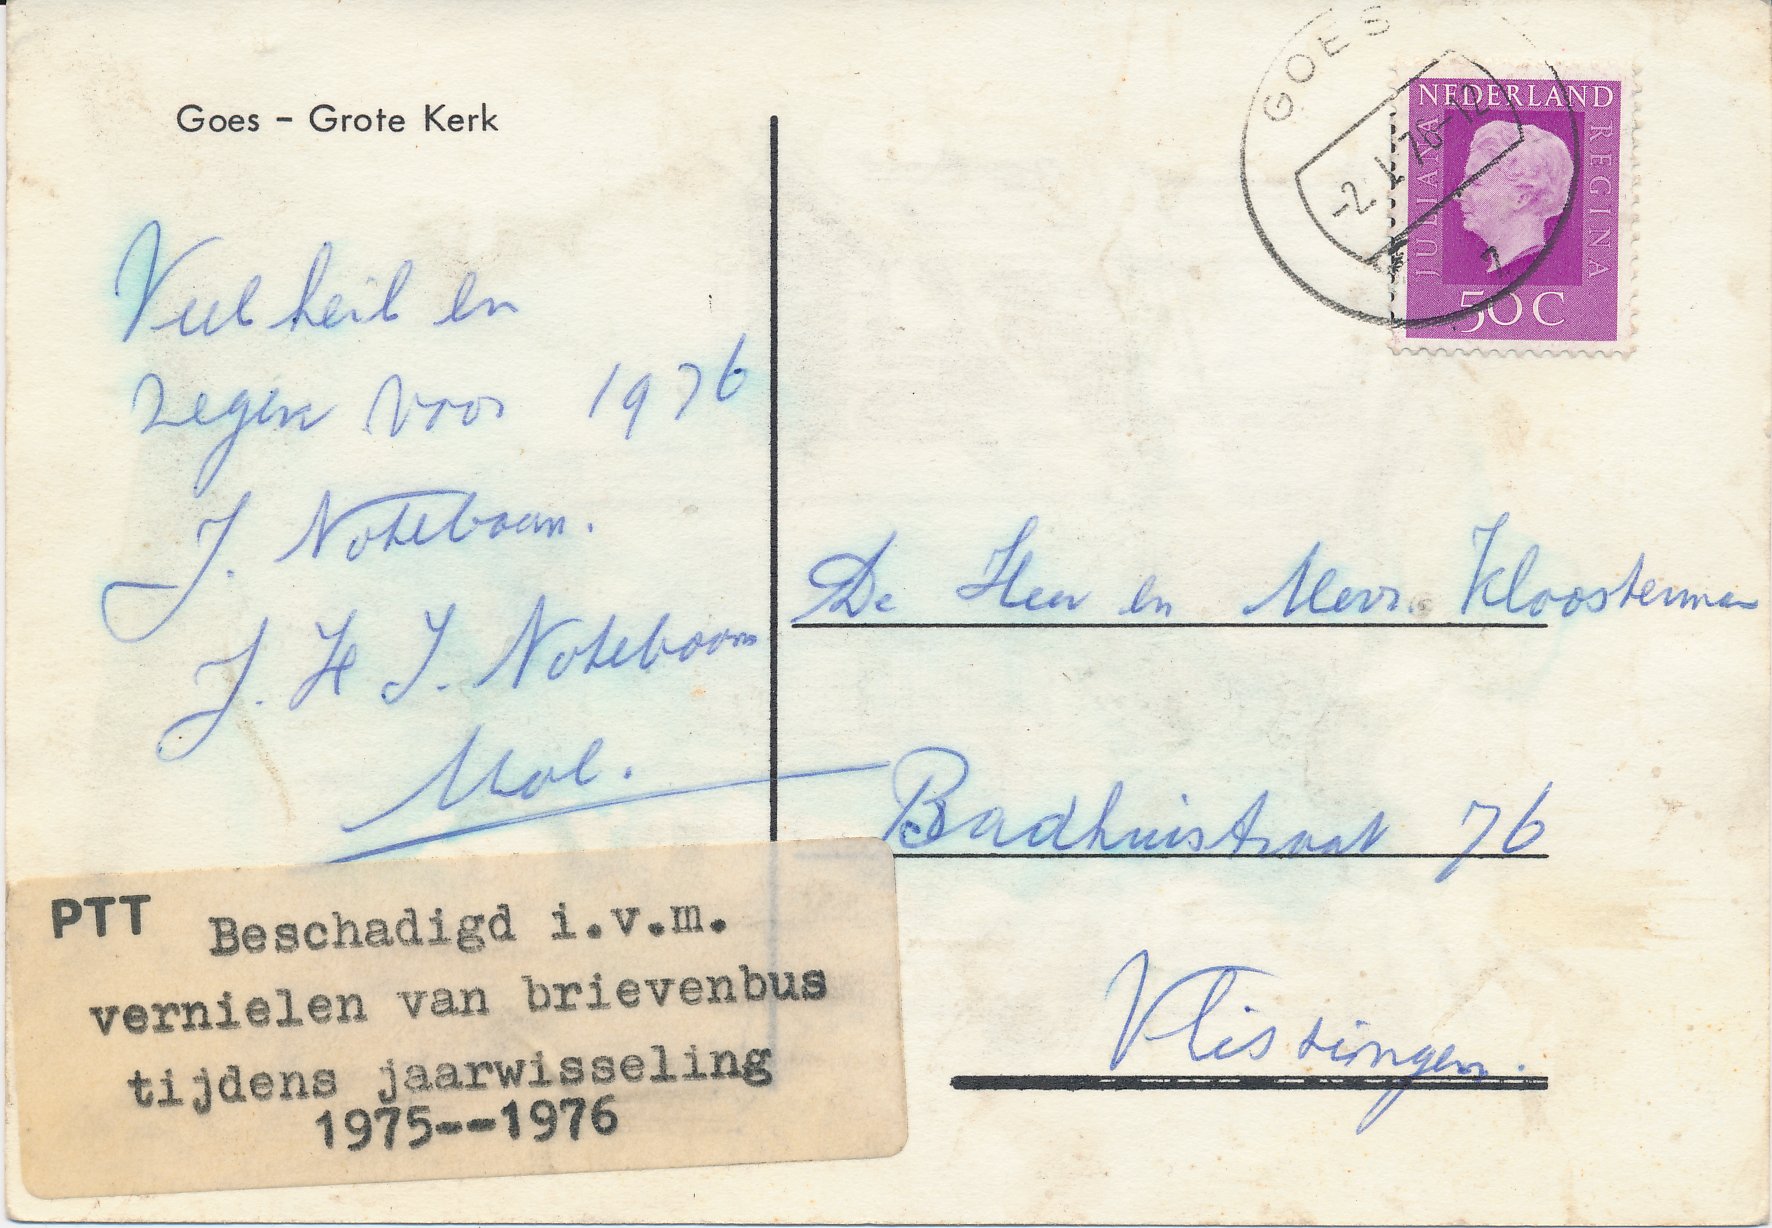 Goes – Grote Kerk
GOES
-2.1.76-12
NEDERLAND
JULIANA
REGINA
50C
Veel heil en
zegen voor 1976
J. Noteboom.
J. H J. Noteboom
Mol.
De Heer en Mevr. Kloosterman
Badhuisstraat 76
Vlissingen.
PTT Beschadigd i.v.m.
vernielen van brievenbus
tijdens jaarwisseling
1975--1976